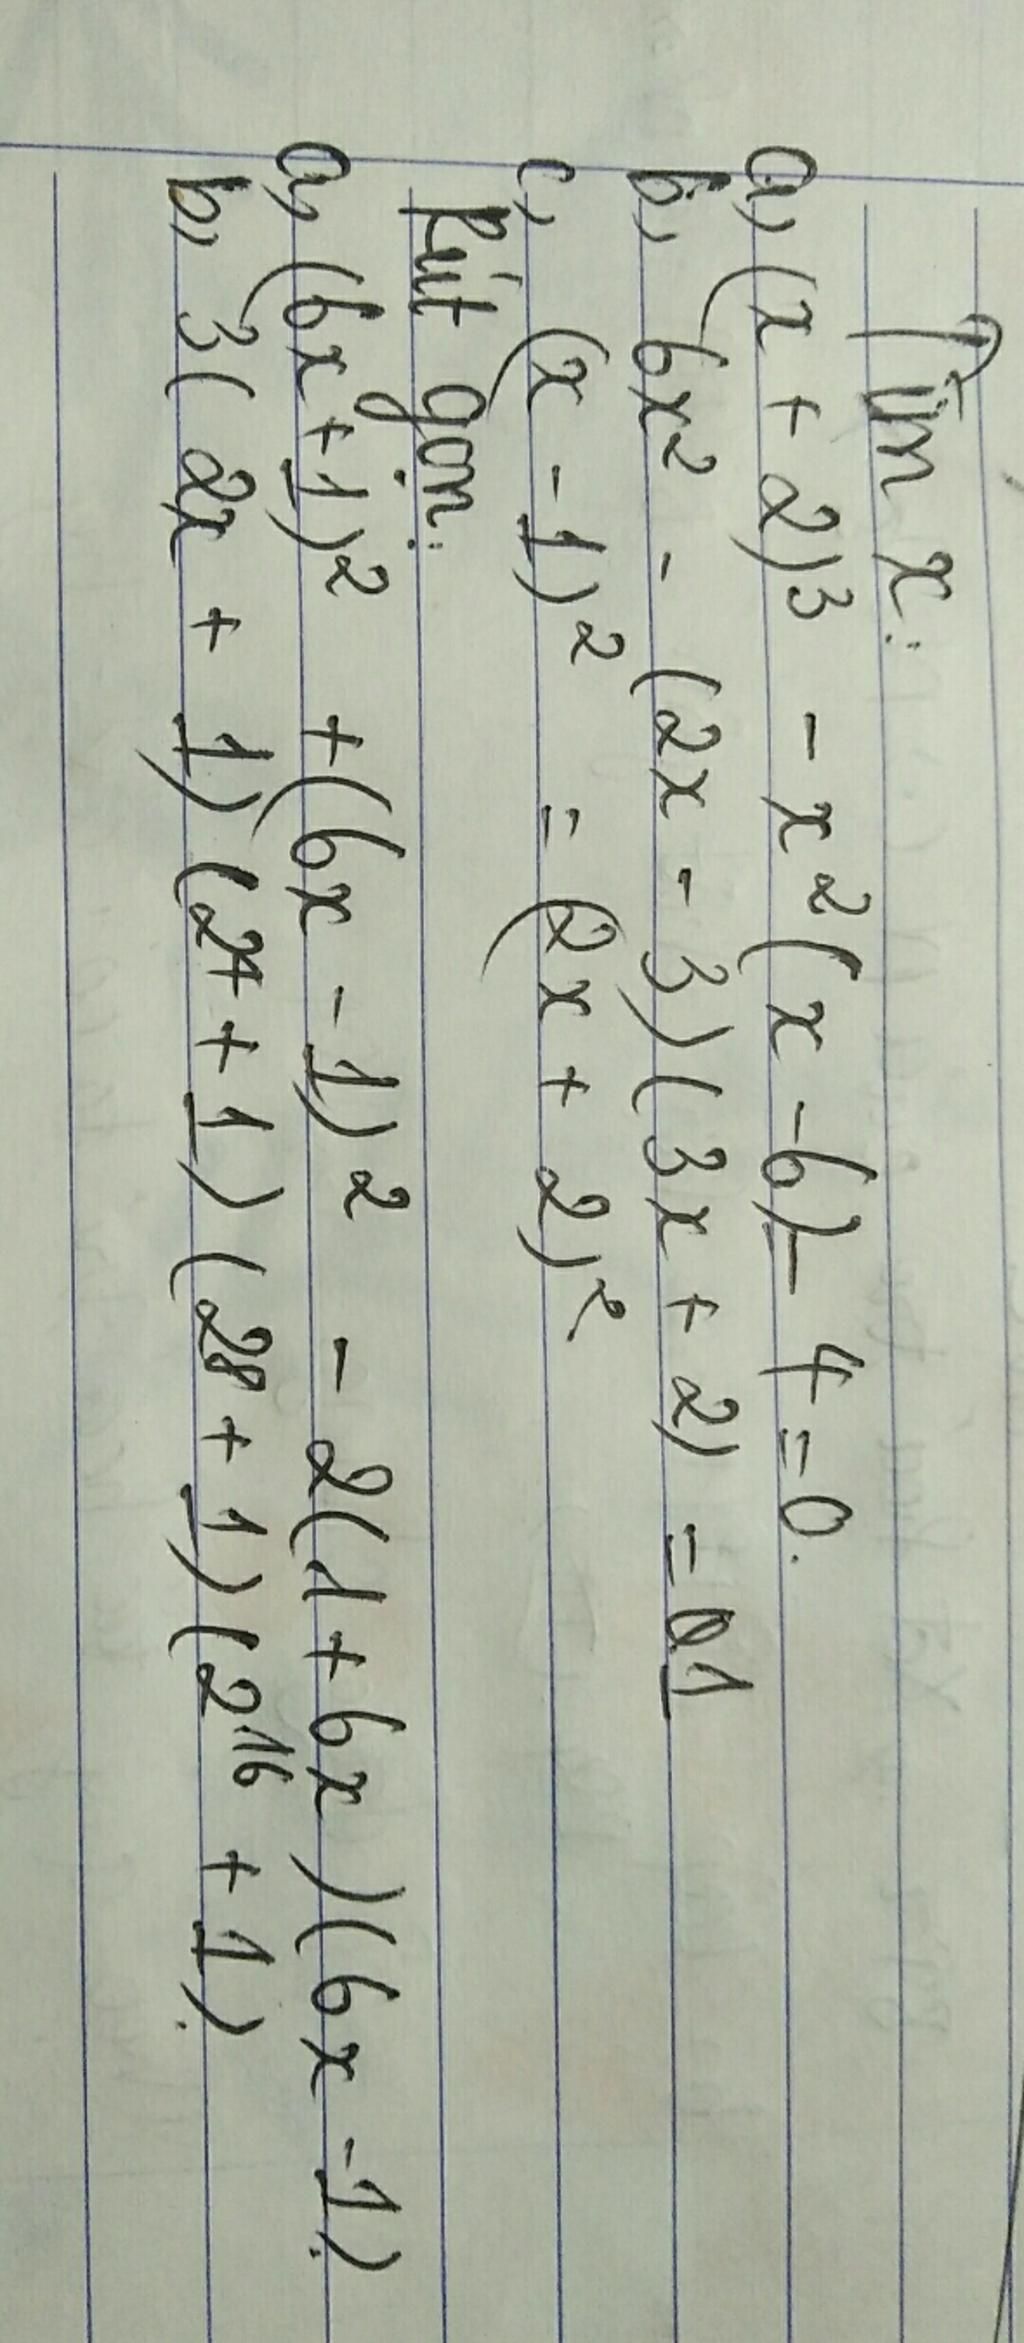 Tìm x:
a, (x + 2)³ - x²(x - 6) - 4 = 0.
b, 6x² - (2x - 3)(3x + 2) = 1
c, (x - 1)² = (2x + 2)²
Rút gọn:
a, (6x + 1)² + (6x - 1)² - 2(1 + 6x)(6x - 1).
b, 3(2x + 1)(2⁴ + 1)(2⁸ + 1)(2¹⁶ + 1).